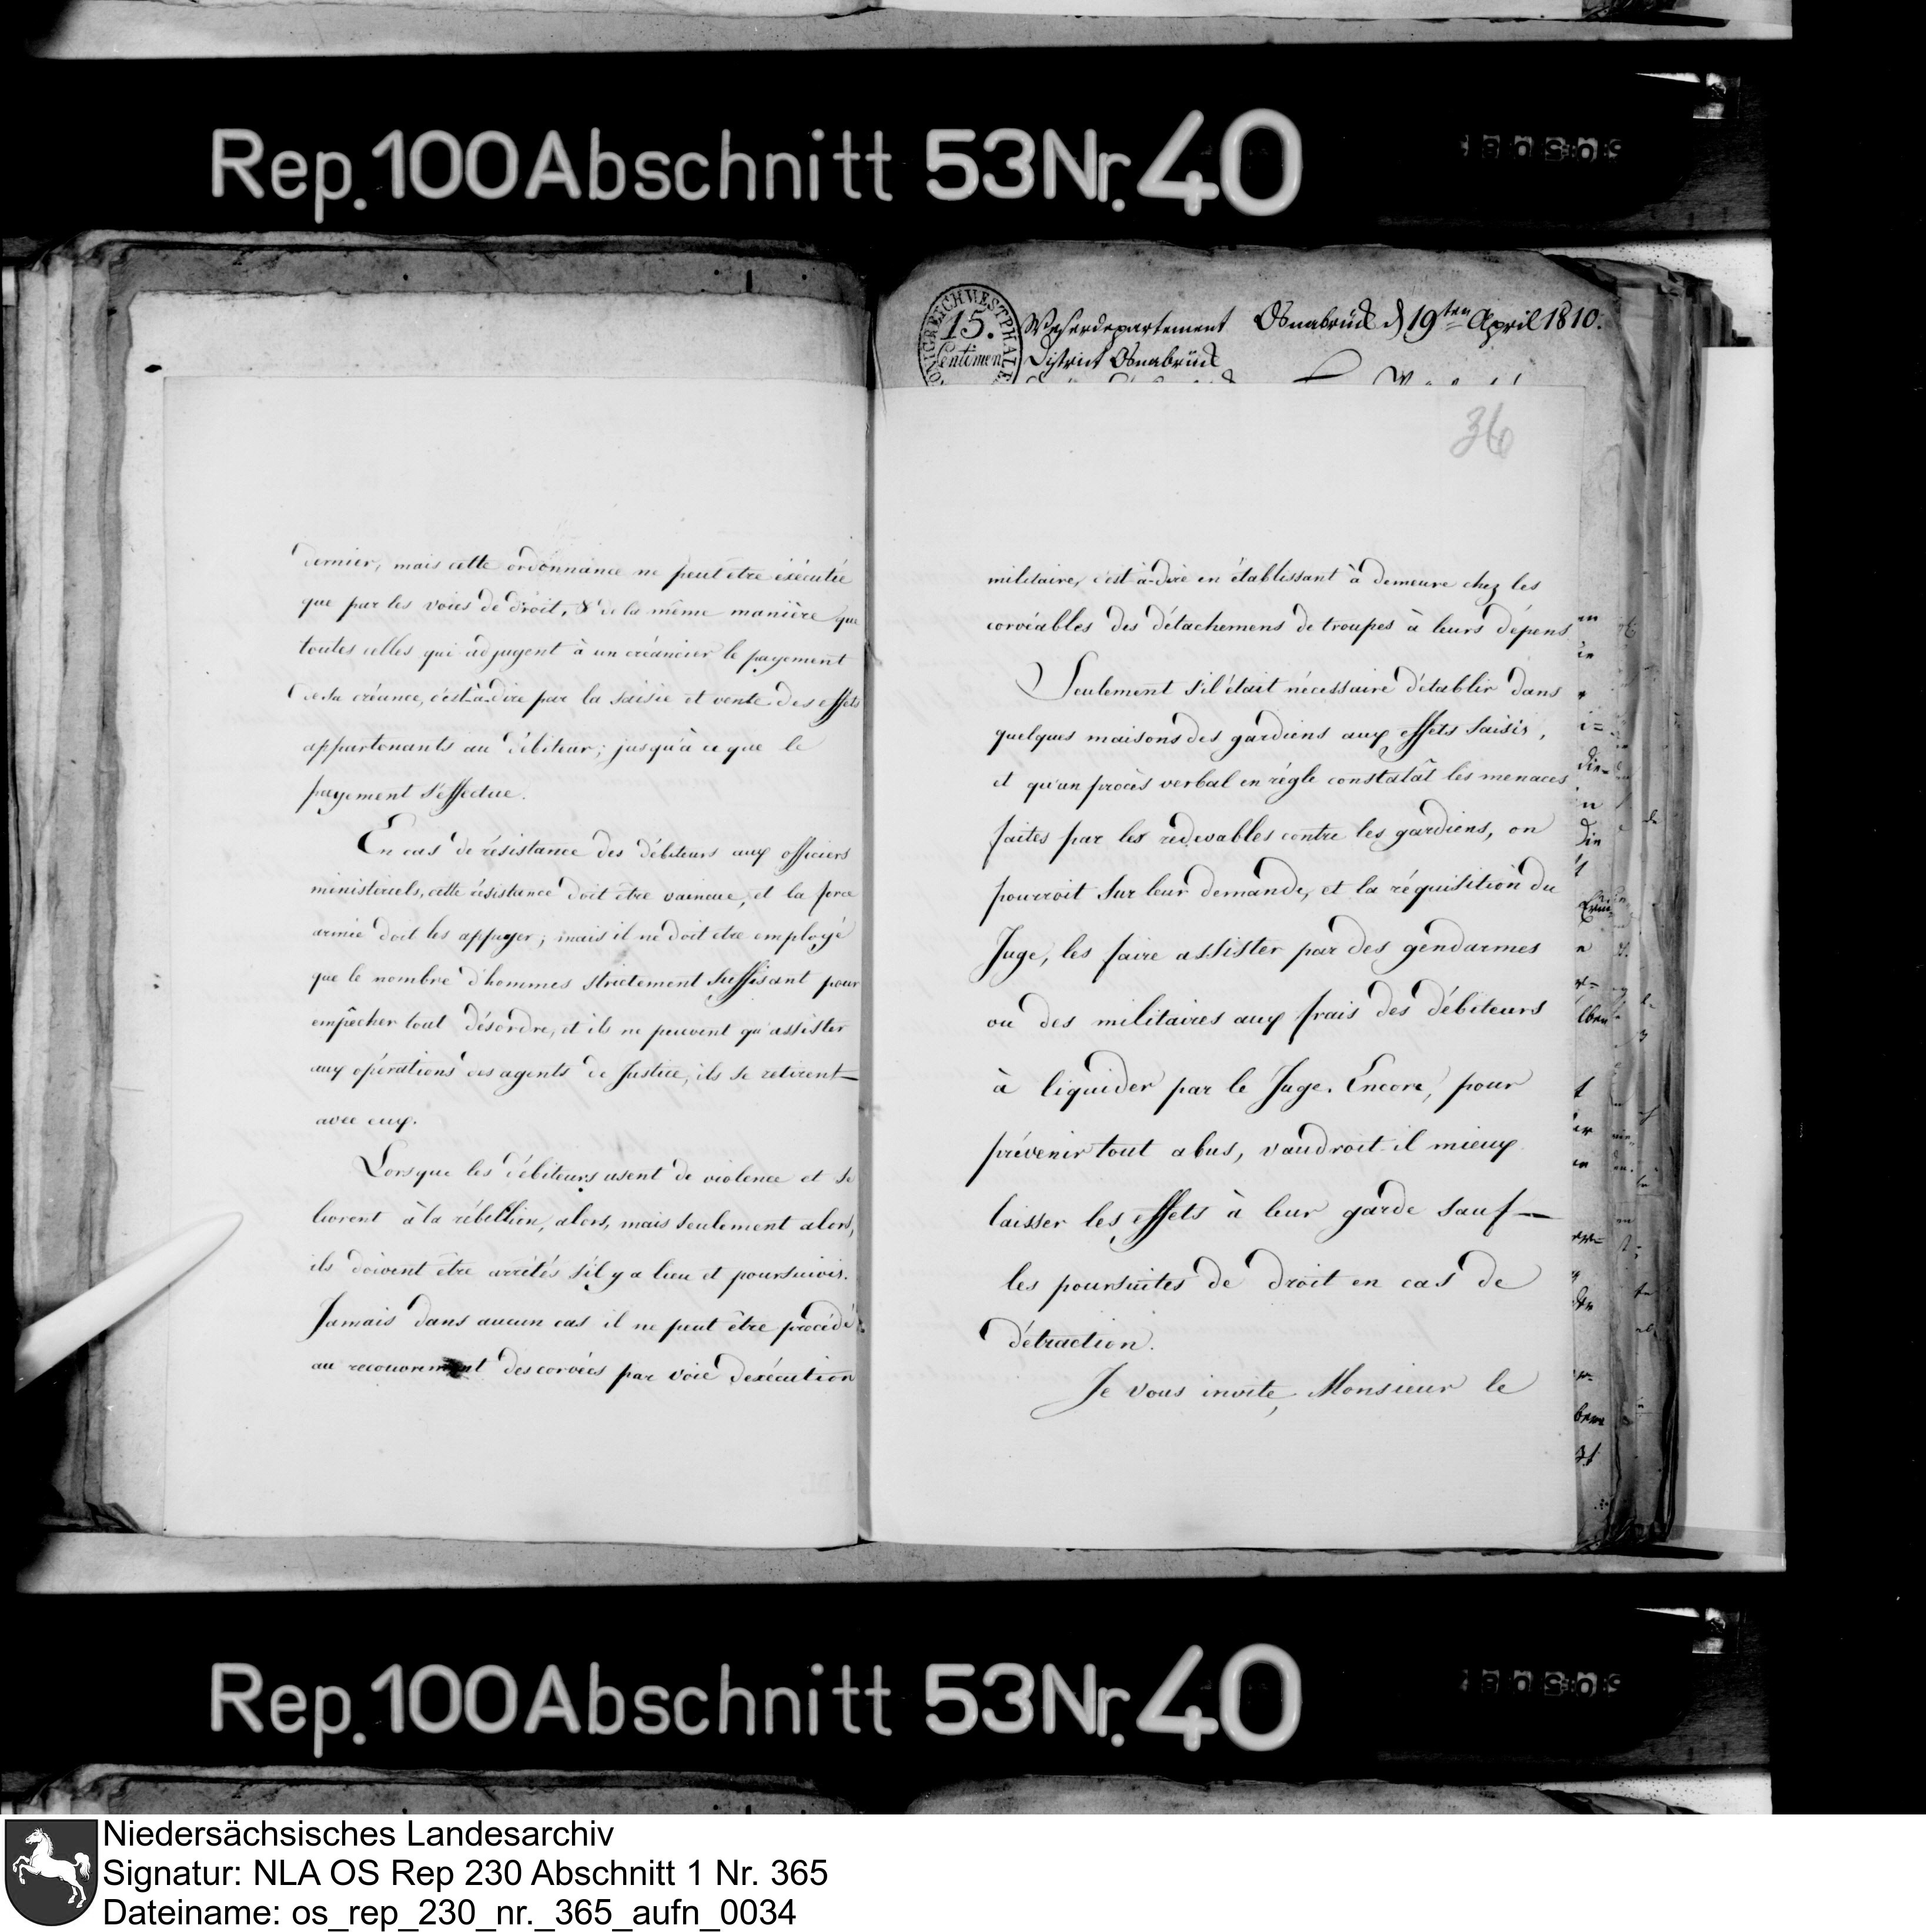 Rep. 100 Abschnitt 53 Nr. 40
KÖNIGREICH WESTPHALEN
15.
Centimen
Weserdepartement Osnabrück d 19ten April 1810.
District Osnabrück
36
dernier, mais cette ordonnance ne peut etre éxécutée
que par les voies de droit, & de la même manière que
toutes celles qui adjugent à un créancier le payement
de sa créance, c'est-à-dire par la saisie et vente des effets
appartenants au débiteur; jusqu'à ce que le
payement s'effectue.
En cas de résistance des débiteurs aux officiers
ministeriels, cette résistance doit être vaincue, et la force
armée doit les appuyer; mais il ne doit etre employé
que le nombre d'hommes strictement suffisant pour
empêcher tout désordre, et ils ne peuvent qu'assister
aux opérations des agents de Justice, ils se retirent
avec eux.
Lorsque les débiteurs usent de violence et se
livrent à la rébellion, alors, mais seulement alors,
ils doivent être arrêtés s'il y a lieu et poursuivis.
Jamais dans aucun cas il ne peut être procédé
au recouvrement des corvées par voie d'exécution
militaire, c'est à-dire en établissant à demeure chez les
corvéables des détachemens de troupes à leurs dépens
Seulement s'il était nécessaire d'établir dans
quelques maisons des gardiens aux effets saisis,
et qu'un procès verbal en règle constatât les menaces
faites par les redevables contre les gardiens, on
pourroit sur leur demande, et la réquisition du
Juge, les faire assister par des gendarmes
ou des militaires aux frais des débiteurs
à liquider par le Juge. Encore, pour
prévenir tout abus, vaudroit-il mieux
laisser les effets à leur garde sauf
les poursuites de droit en cas de
détraction.
Je vous invite, Monsieur le
Rep. 100 Abschnitt 53 Nr. 40
Niedersächsisches Landesarchiv
Signatur: NLA OS Rep 230 Abschnitt 1 Nr. 365
Dateiname: os_rep_230_nr._365_aufn_0034